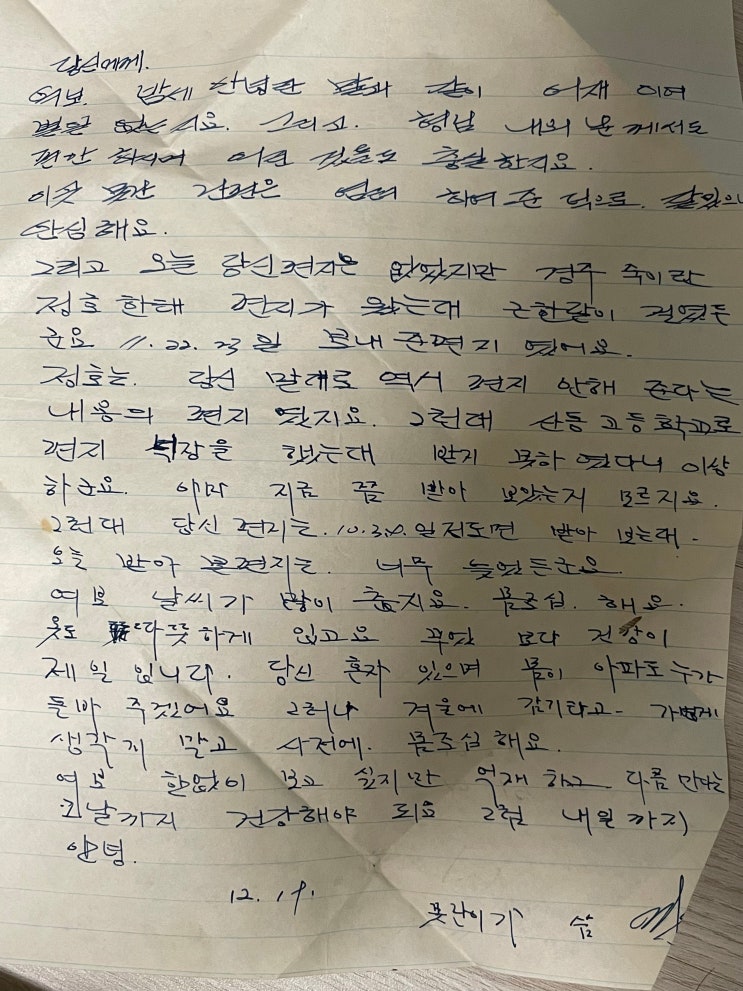 당신에게.
여보. 밤세 안녕한 말과 같이 어재 이여
별일 없는지요. 그리고. 형님 내외 분 께서도
편안 하시며 어린 것들도 충실한지요.
이곳 못난 건편은 염여 하여 준 덕으로. 잘있으니
안심해요.
그리고 오늘 당신편지은 없었지만 경주 죽이란
정효 한태 편지가 왔는대 근한달이 걸였든
군요 11. 22. 23일 보내준편지 였어요.
정효는. 당신 말대로 역시 편지 안해 준다는
내용의 편지 였지요. 그런대 산동고등학교로
편지 넉장을 했는대 받지 못하였다니 이상
하군요. 아마 지금 쯤 받아 보았는지 모르지요.
그런대 당신 편지는. 10. 일정도면 받아 보는대.
오늘 받아 본편지는. 너무 늦었든군요.
여보 날씨가 많이 춥지요. 몸조심. 해요.
옷도 따뜻하게 입고요 무엇 보다 건강이
제일 입니다. 당신 혼자 있으며 몸이 아파도 누가
돌바 주겠어요 그러나 겨울에 감기라고- 가볍게
생각지 말고 사전에. 몸조심해요.
여보 한없이 보고 싶지만 억재 하고 다음 만나는
그날까지 건강해야 되요 그럼 내일 까지
안녕.
12. 19.
못난이가 씀